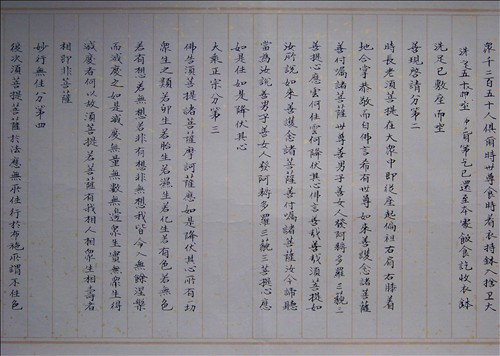 眾千二百五十人俱爾時世尊食時着衣持鉢入捨卫大
乞已還至本家飯食訖收衣鉢
洗足已敷座而坐
善現啟請分第二
時長老須菩提在大眾中即從座起偏袒右肩右膝着
地合掌恭敬而白佛言希有世尊如来善護念諸菩薩
善付囑諸菩薩世尊善男子善女人發阿耨多羅三藐三
菩提心應云何住云何降伏其心佛言善哉善哉須菩提如
汝所說如来善護念諸菩薩善付囑諸菩薩汝今諦聽
當為汝說善男子善女人發阿耨多羅三藐三菩提心應
如是住如是降伏其心
大乘正宗分第三
佛告須菩提諸菩薩摩訶薩應如是降伏其心所有一切
眾生之類若卵生若胎生若濕生若化生若有色若無色
若有想若無想若非有想非無想我皆令入無餘涅槃
而滅度之如是滅度無量無數無邊眾生實無眾生得
滅度者何以故須菩提若菩薩有我相人相眾生相壽者
相即非菩薩
妙行無住分第四
復次須菩提菩薩於法應無所住行於布施所謂不住色